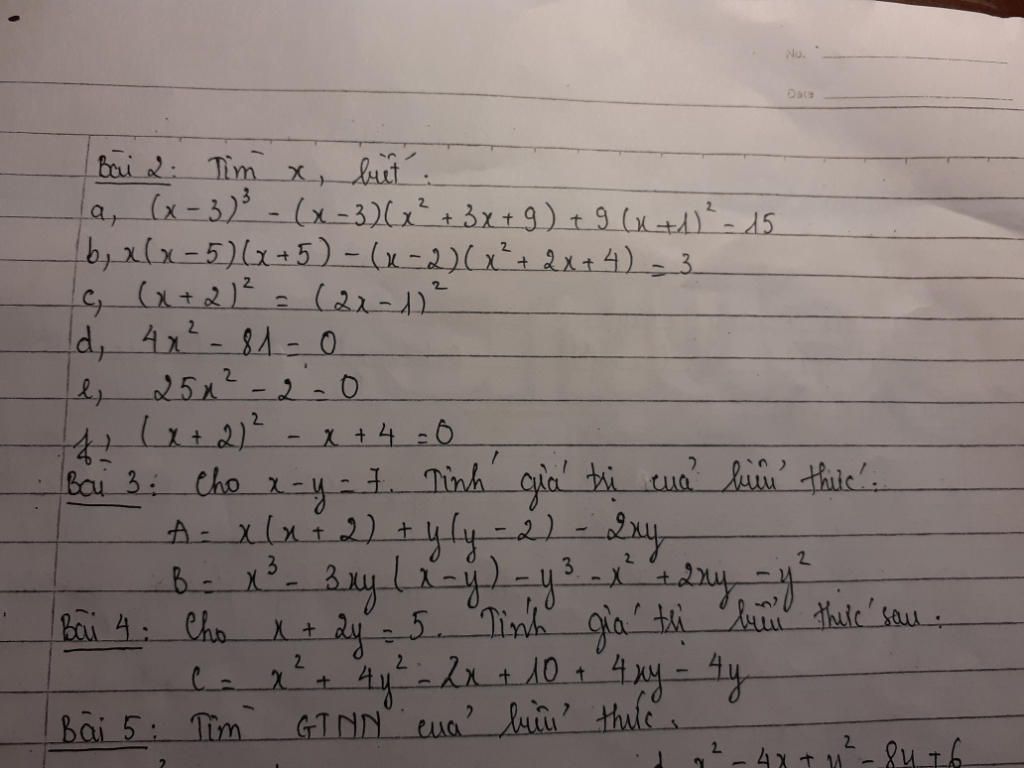 No.
Date
Bài 2: Tìm x, biết:
a, (x-3)³ - (x-3)(x² + 3x + 9) + 9(x+1)² = 15
b, x(x-5)(x+5) - (x-2)(x² + 2x + 4) = 3
c, (x+2)² = (2x-1)²
d, 4x² - 81 = 0
e, 25x² - 2 = 0
f, (x+2)² - x + 4 = 0
Bài 3: Cho x-y = 7. Tính giá trị của biểu thức:
A = x(x+2) + y(y-2) - 2xy
B = x³ - 3xy(x-y) - y³ - x² + 2xy - y²
Bài 4: Cho x + 2y = 5. Tính giá trị biểu thức sau:
C = x² + 4y² - 2x + 10 + 4xy - 4y
Bài 5: Tìm GTNN của biểu thức.
x² - 4x + y² - 8y + 6